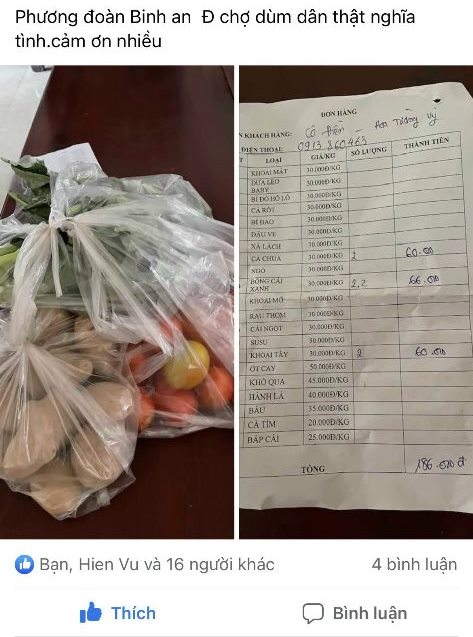 Phương đoàn Binh an Đ chợ dùm dân thật nghĩa
tình.cảm ơn nhiều
ĐƠN HÀNG
N KHÁCH HÀNG: Cô Hiền - An Tường Vy
ĐIỆN THOẠI: 0913 860 463
T LOẠI GIÁ/KG SỐ LƯỢNG THÀNH TIỀN
KHOAI MÁT 30.000Đ/KG
DƯA LEO BABY 30.000Đ/KG
BÍ ĐỎ HỒ LÔ 30.000Đ/KG
CÀ RỐT 30.000Đ/KG
BÍ ĐAO 30.000Đ/KG
ĐẬU VE 30.000Đ/KG
XÀ LÁCH 30.000Đ/KG
CÀ CHUA 30.000Đ/KG 2 60.000
NGÒ 30.000Đ/KG
BÔNG CẢI XANH 30.000Đ/KG 2,2 66.000
KHOAI MỠ 30.000Đ/KG
RAU THƠM 30.000Đ/KG
CẢI NGỌT 30.000Đ/KG
SUSU 30.000Đ/KG
KHOAI TÂY 30.000Đ/KG 2 60.000
ỚT CAY 50.000Đ/KG
KHỔ QUA 45.000Đ/KG
HÀNH LÁ 40.000Đ/KG
BẦU 35.000Đ/KG
CÀ TÍM 20.000Đ/KG
BẮP CẢI 25.000Đ/KG
TỔNG 186.000đ
Bạn, Hien Vu và 16 người khác 4 bình luận
Thích Bình luận